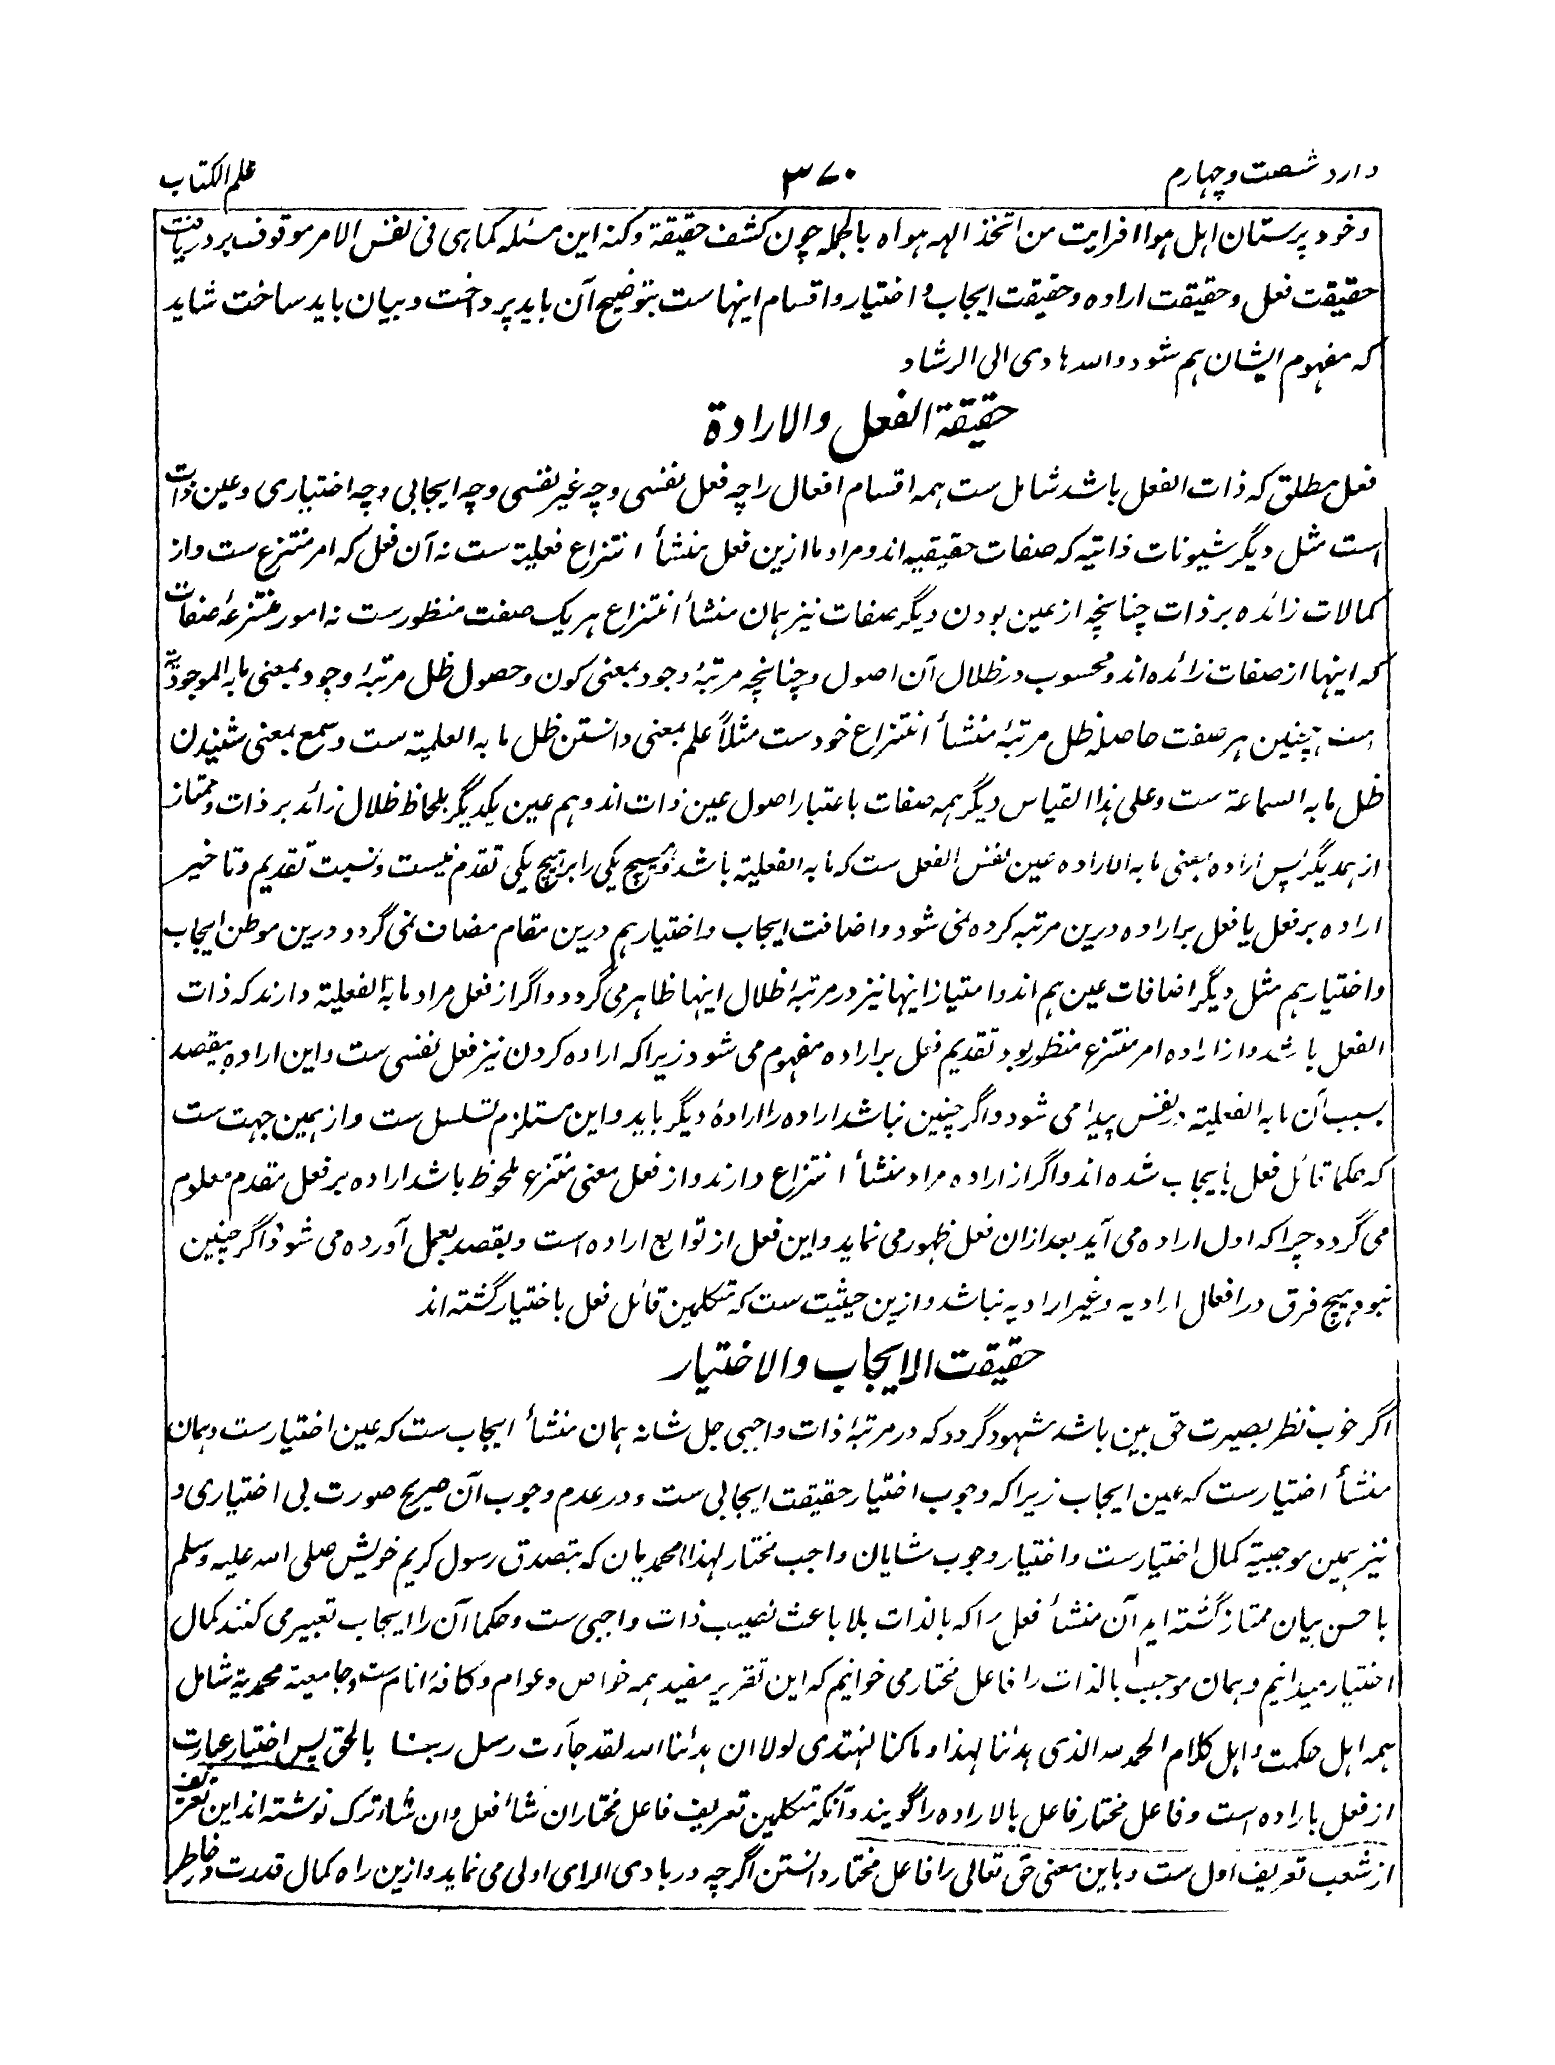 وارد شصت و چهارم
۳۷۰
علم الکتاب
و خود پرستان اهل هوا افرایت من اتخذ الهه هواه بالجمله چون کشف حقیقة و کنه این مسئله کماهی فی نفس الامر موقوف بر دریافت
حقیقت فعل و حقیقت اراده و حقیقت ایجاب و اختیار و اقسام اینهاست بتوضیح آن باید پرداخت و بیان باید ساخت شاید
که مفهوم ایشان هم شود و الله هادی الی الرشاد
حقیقة الفعل والارادة
فعل مطلق که ذات الفعل باشد شامل ست همه اقسام افعال را چه فعل نفسی و چه غیر نفسی و چه ایجابی و چه اختیاری و عین ذات
است مثل دیگر شیونات ذاتیه که صفات حقیقیه اند و مراد ما ازین فعل منشأ انتزاع فعلیة ست نه آن فعل که امر منتزع ست و از
کمالات زائده بر ذات چنانچه از عین بودن دیگر صفات نیز همان منشأ انتزاع هر یک صفت منظور ست نه امور منتزعهٔ صفات
که اینها از صفات زائده اند و محسوب در ظلال آن اصول و چنانچه مرتبهٔ وجود بمعنی کون و حصول ظل مرتبهٔ وجود بمعنی ما به الموجودیة
ست همچنین هر صفت حاصله ظل مرتبهٔ منشأ انتزاع خود ست مثلاً علم بمعنی دانستن ظل ما به العلمیة ست و سمع بمعنی شنیدن
ظل ما به السماعة ست و علی هذا القیاس دیگر همه صفات باعتبار اصول عین ذات اند و هم عین یکدیگر بلحاظ ظلال زائد بر ذات و ممتاز
از همدیگر پس اراده بمعنی ما به الاراده عین نفس الفعل ست که ما به الفعلیة باشد و هیچ یکی را بر هیچ یکی تقدم نیست و نسبت تقدیم و تاخیر
اراده بر فعل یا فعل بر اراده درین مرتبه کرده نمی شود و اضافت ایجاب و اختیار هم درین مقام مضاف نمی گردد درین موطن ایجاب
و اختیار هم مثل دیگر اضافات عین هم اند و امتیاز اینها نیز در مرتبهٔ ظلال اینها ظاهر می گردد و اگر از فعل مراد ما به الفعلیة دارند که ذات
الفعل باشد و از اراده امر منتزع منظور بود تقدیم فعل بر اراده مفهوم می شود زیرا که اراده کردن نیز فعل نفسی ست و این اراده بقصد
بسبب آن ما به الفعلیة در نفس پیدا می شود و اگر چنین نباشد اراده را ارادهٔ دیگر باید و این مستلزم تسلسل ست و از همین جهت ست
که حکما قائل فعل بایجاب شده اند و اگر از اراده مراد منشأ انتزاع دارند و از فعل معنی منتزع ملحوظ باشد اراده بر فعل مقدم معلوم
می گردد چرا که اول اراده می آید بعد ازان فعل ظهور می نماید و این فعل از توابع اراده است و بقصد بعمل آورده می شود و اگر چنین
نبود هیچ فرق در افعال ارادیه و غیر ارادیه نباشد و ازین حیثیت ست که متکلمین قائل فعل باختیار گشته اند
حقیقت الایجاب والاختیار
اگر خوب نظر بصیرت حق بین باشد مشهود گردد که در مرتبهٔ ذات واجبی جل شانه همان منشأ ایجاب ست که عین اختیار ست و همان
منشأ اختیار ست که عین ایجاب زیرا که وجوب اختیار حقیقت ایجابی ست و در عدم وجوب آن صریح صورت بی اختیاری و
نیز همین موجبیة کمال اختیار ست و اختیار وجوب شایان واجب مختار لهذا محمدیان که بتصدق رسول کریم خویش صلی الله علیه وسلم
باحسن بیان ممتاز گشته ایم آن منشأ فعل را که بالذات بلا باعث نصیب ذات واجبی ست و حکما آن را ایجاب تعبیر می کنند کمال
اختیار میدانیم و همان موجب بالذات را فاعل مختار می خوانیم که این تقریر مفید همه خواص و عوام و کافه انام ست و جامعیة محمدیة شامل
همه اهل حکمت و اهل کلام الحمد لله الذی هدٰنا لهذا و ما کنا لنهتدی لولا ان هدٰنا الله لقد جآءت رسل ربنا بالحق پس اختیار عبارت
از فعل باراده است و فاعل مختار فاعل بالاراده را گویند و آنکه متکلمین تعریف فاعل مختار ان شاء فعل وان شاء ترک نوشته اند این تعریف
از شعب تعریف اول ست و باین معنی حق تعالی را فاعل مختار دانستن اگرچه در بادی الرای اولی می نماید و ازین راه کمال قدرت و خاطر